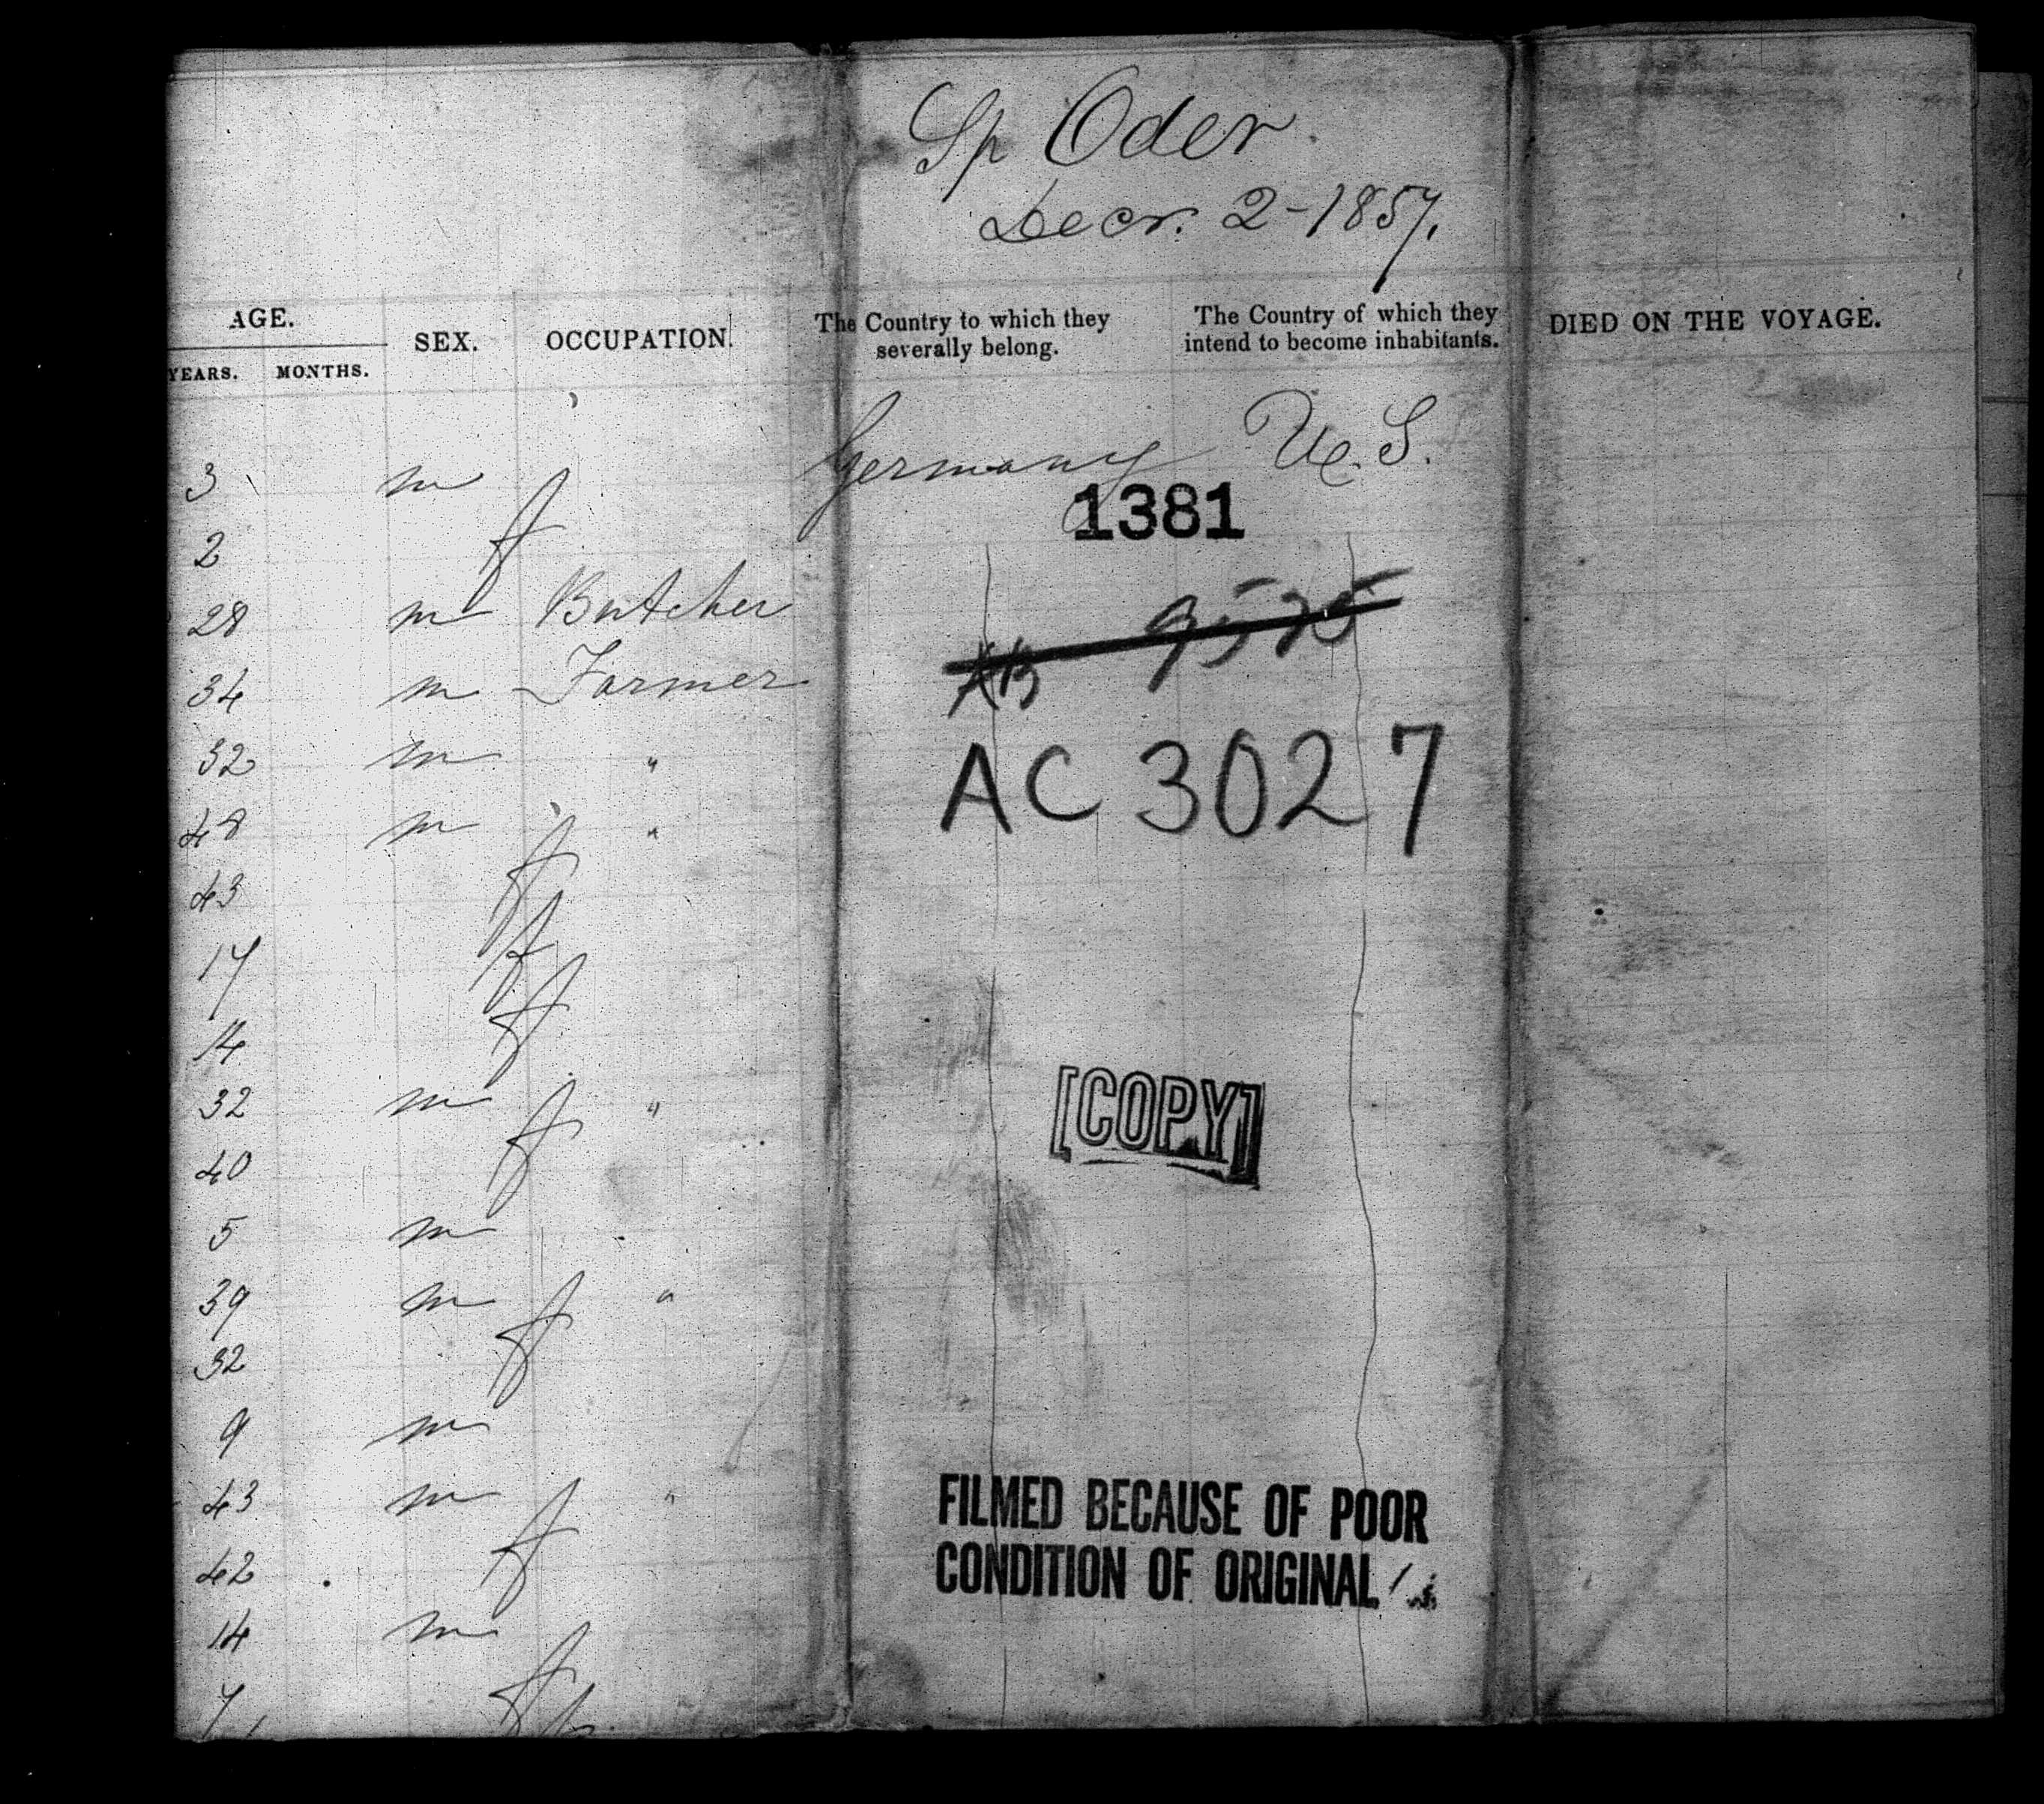 Sp Oder
Decr. 2-1857.
AGE. SEX. OCCUPATION. The Country to which they severally belong. The Country of which they intend to become inhabitants. DIED ON THE VOYAGE.
YEARS. MONTHS.
3 m Germany U.S.
1381
2 f
28 m Butcher
34 m Farmer
AC 3027
32 m "
48 m "
43 f
17 f
14 f
32 m "
40 f
[COPY]
5 m
39 m "
32 f
9 m
43 m "
FILMED BECAUSE OF POOR
CONDITION OF ORIGINAL
42 f
14 m
7 f